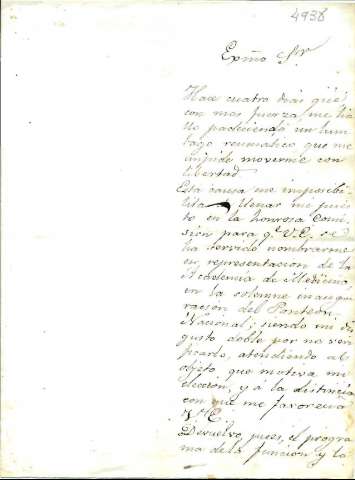 4938
Exmo Sr
Hace cuatro dias que
con mas fuerza me ha
llo padeciendo un lum
bago reumatico que me
impide moverme con
libertad.
Esta causa me imposibi
lita llenar mi pues
to en la honrosa Comi
sion para q.e V.E. se
ha servido nombrarme
en representacion de la
Academia de Medicina
en la solemne inaugu
racion del Panteon
Nacional; siendo mi dis
gusto doble por no veri
ficarlo, atendiendo al
objeto que motiva mi
eleccion, y á la distincion
con que me favorece
V.E.
Devuelvo, pues, el progra
ma de la funcion y la